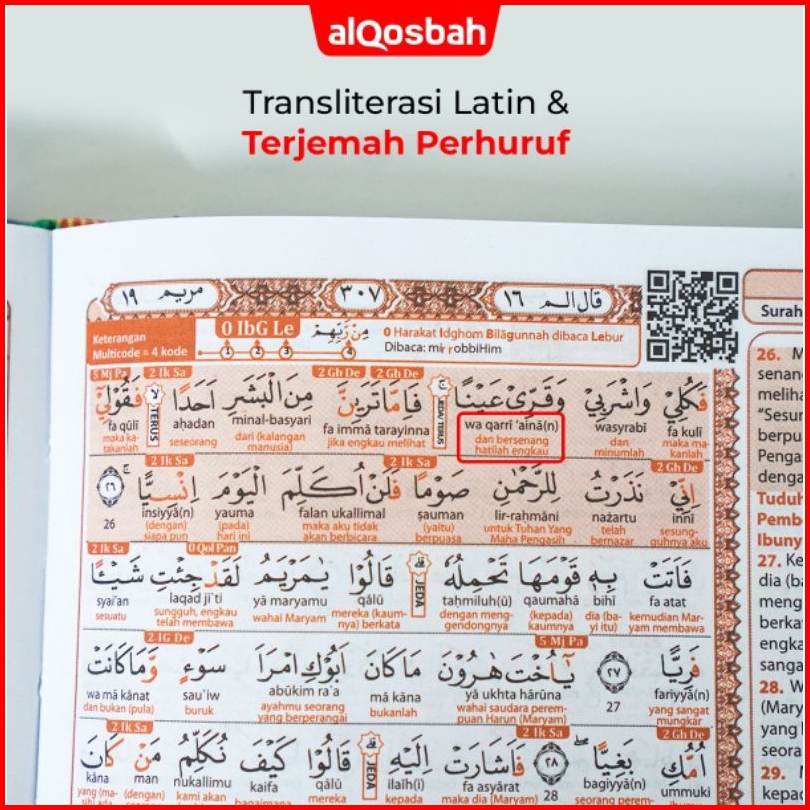 alQosbah
Transliterasi Latin &
Terjemah Perhuruf
مريم ١٩
٣٠٧
قال الم ١٦
Keterangan
Multicode = 4 kode
0 IbG Le
1 2 3 4
مِنْ رَّبِّهِمْ
0 Harakat Idghom Bilāgunnah dibaca Lebur
Dibaca: mir robbiHim
Surah
2 Gh De 2 Gh De 2 Ik Sa 5 Mj Pa
فَكُلِيْ وَاشْرَبِيْ وَقَرِّيْ عَيْنًا JEDA/ TERUS فَاِمَّا تَرَيِنَّ مِنَ الْبَشَرِ اَحَدًا TERUS فَقُوْلِيْٓ
fa kulī wasyrabī wa qarrī 'ainā(n) fa immā tarayinna minal-basyari aḥadan fa qūlī
maka ma- dan dan bersenang jika engkau melihat dari (kalangan seseorang maka ka-
kanlah minumlah hatilah engkau manusia) takanlah
2 Gh De 2 Ik Sa 2 Ik Sa
اِنِّيْ نَذَرْتُ لِلرَّحْمٰنِ صَوْمًا فَلَنْ اُكَلِّمَ الْيَوْمَ اِنْسِيًّا ٢٦
innī nażartu lir-raḥmāni ṣauman falan ukallimal yauma insiyyā(n) 26
sesung- telah untuk Tuhan Yang (yaitu) maka aku tidak (pada) (dengan)
guhnya aku bernazar Maha Pengasih berpuasa akan berbicara hari ini siapa pun
0 Qol Pan 2 Ik Sa
فَاَتَتْ بِهٖ قَوْمَهَا تَحْمِلُهٗ JEDA قَالُوْا يٰمَرْيَمُ لَقَدْ جِئْتِ شَيْـًٔا
fa atat bihī qaumahā taḥmiluh(ū) qālū yā maryamu laqad ji'ti syai'an
kemudian Mar- dia (ba- (kepada) dengan meng- mereka (kaum- wahai Maryam sungguh, engkau sesuatu
yam membawa yi itu) kaumnya gendongnya nya) berkata telah membawa
5 Mj Pa 2 IG De
فَرِيًّا ٢٧ يٰٓاُخْتَ هٰرُوْنَ مَا كَانَ اَبُوْكِ امْرَاَ سَوْءٍ وَّمَا كَانَتْ
fariyyā(n) 27 yā ukhta hārūna mā kāna abūkim ra'a sau'iw wa mā kānat
yang sangat wahai saudara perem- bukanlah ayahmu seorang buruk dan bukan (pula)
mungkar puan Harun (Maryam) yang berperangai
2 Gh De 2 Ik Sa
اُمُّكِ بَغِيًّا ٢٨ فَاَشَارَتْ اِلَيْهِ JEDA قَالُوْا كَيْفَ نُكَلِّمُ مَنْ كَانَ
ummuki bagiyyā(n) 28 fa asyārat ilaīh(i) qālū kaifa nukallimu man kāna
ibumu seorang perem- maka dia (Maryam) kepada mereka bagaimana kami akan (dengan) yang (ma-
26. M
senan
meliha
"Sesur
berpu
Penga
denga
Tuduh
Pemb
Ibuny
27. Ke
dia (ba
meng
berka
engka
sanga
28. W
(Mary
yang
seora
29. M
kepad